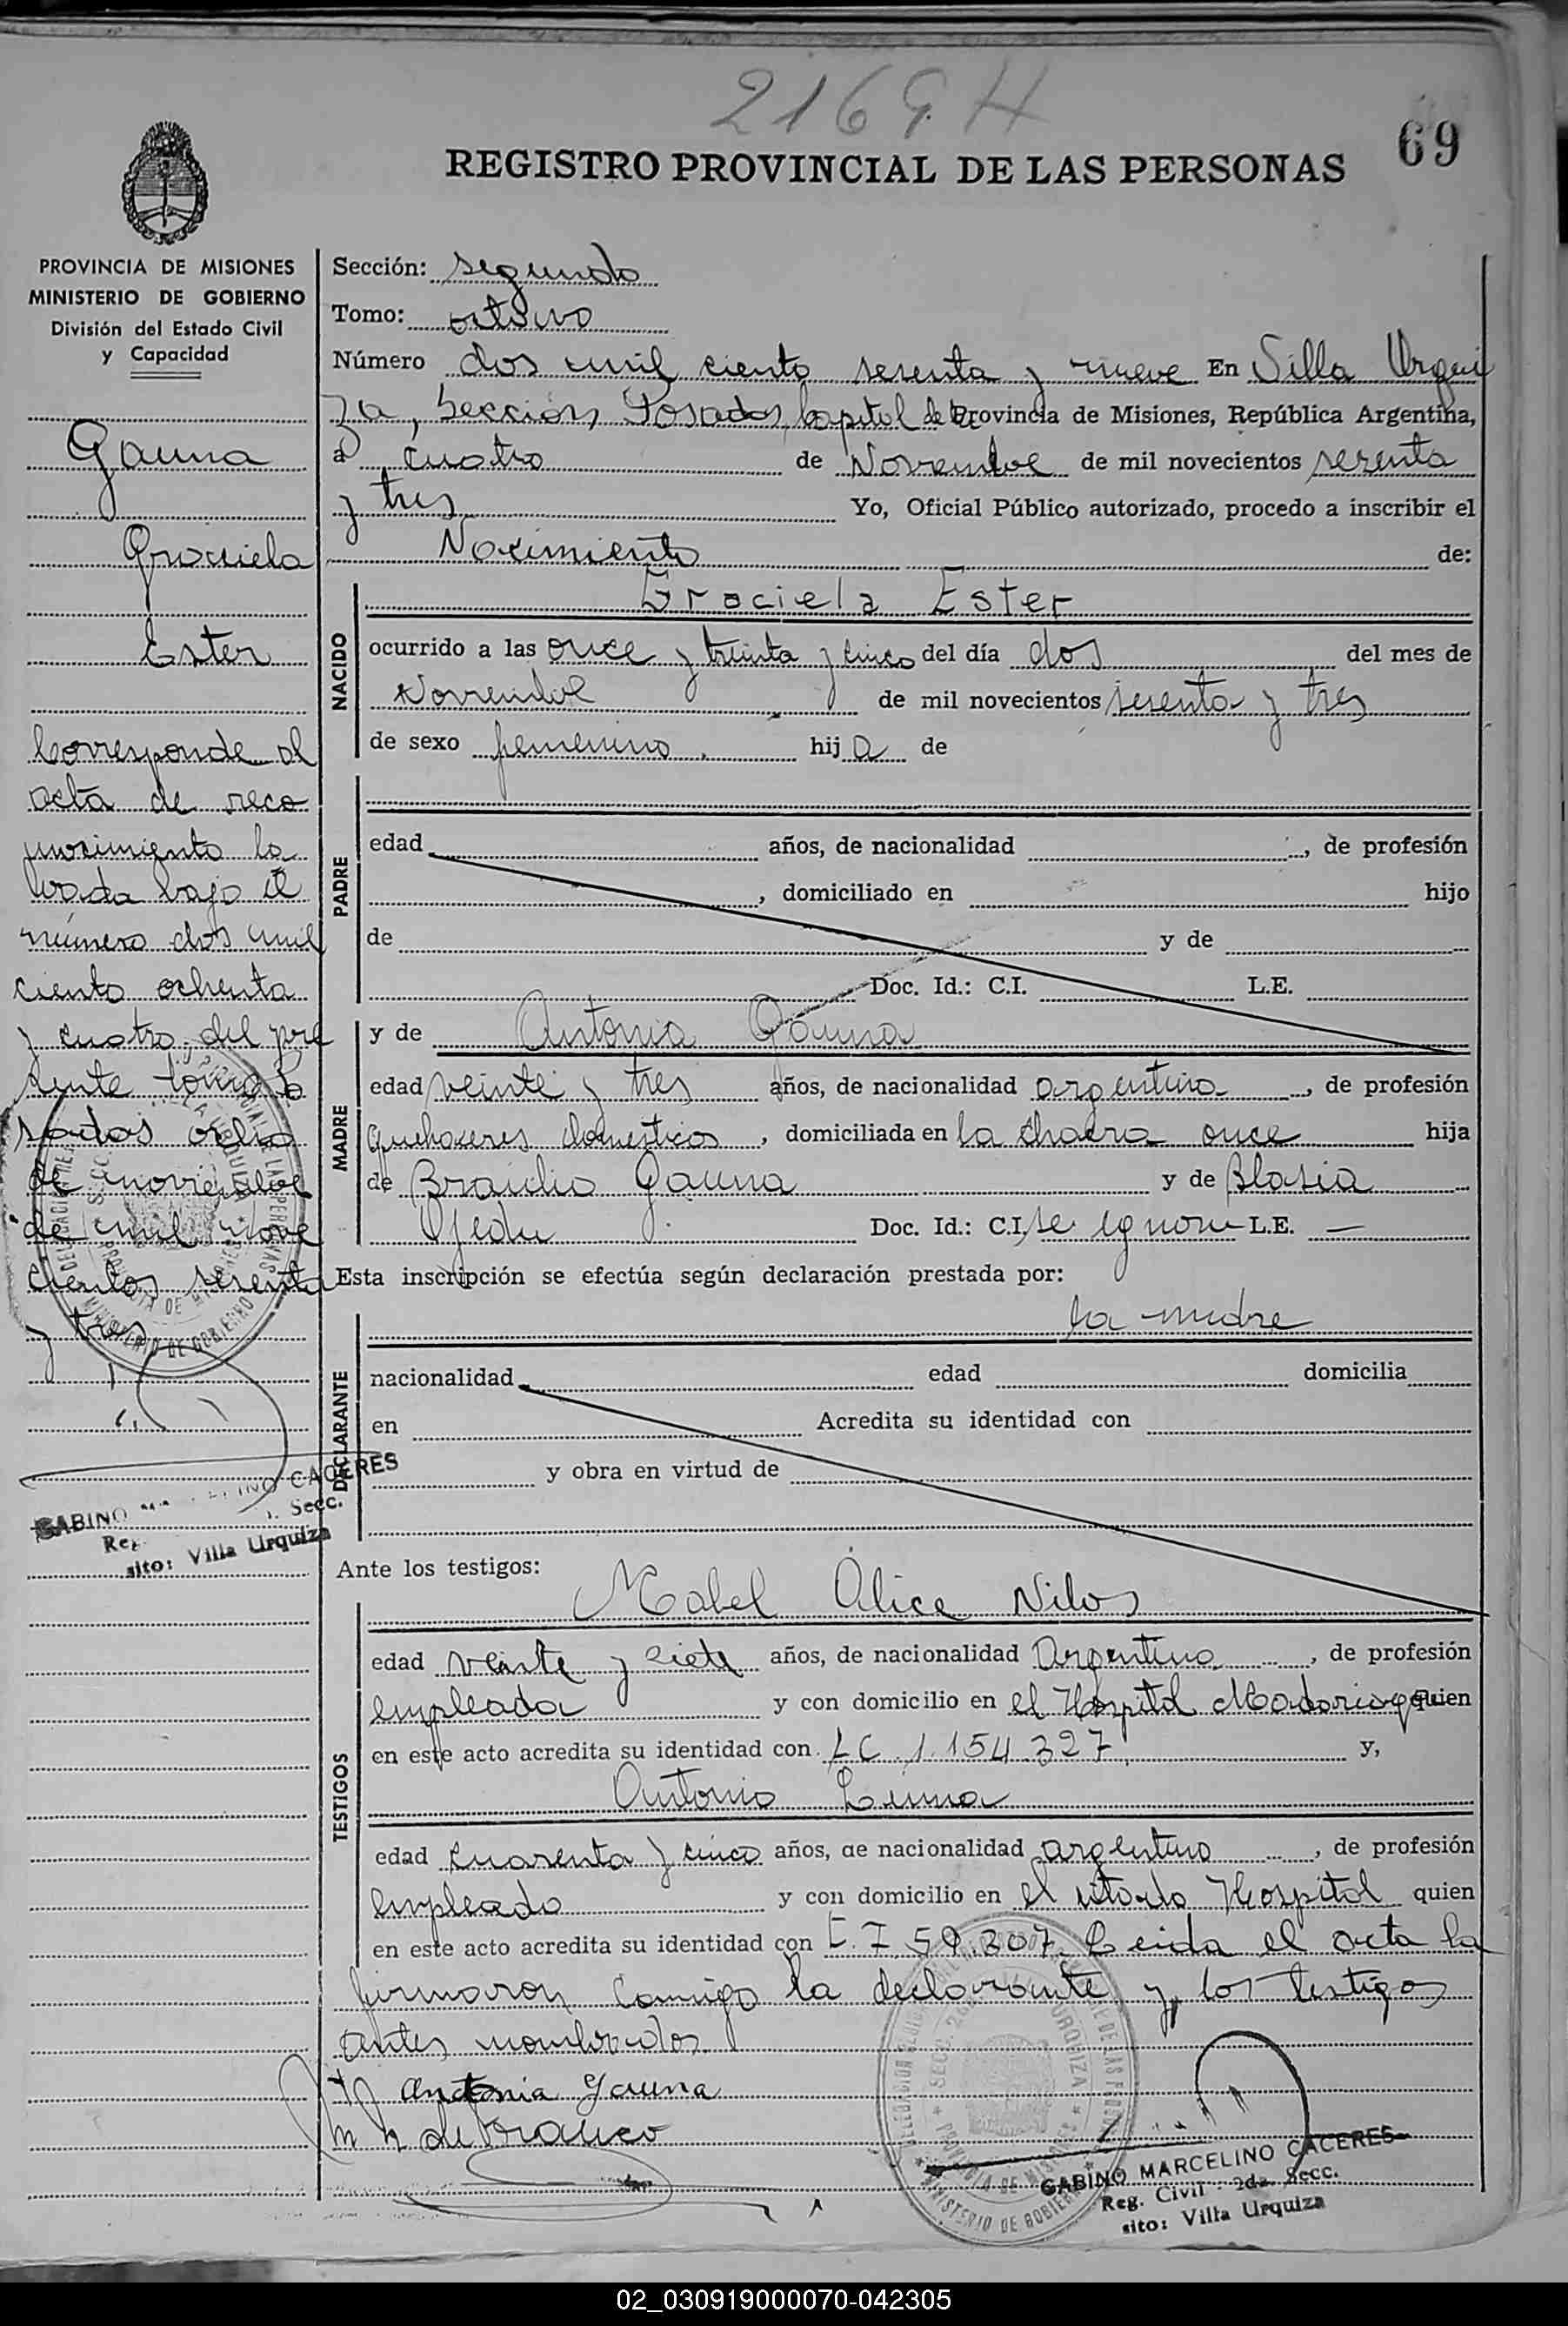 2169 H
69
REGISTRO PROVINCIAL DE LAS PERSONAS
PROVINCIA DE MISIONES
MINISTERIO DE GOBIERNO
División del Estado Civil
y Capacidad
Gauna
Graciela
Ester
Corresponde al
acta de reco
nocimiento la
brada bajo el
número dos mil
ciento ochenta
y cuatro del pre
sente tomo Po
sadas ocho
de noviembre
de mil nove
cientos sesenta
y tres
GABINO CACERES
Secc.
sito: Villa Urquiza
Sección: segunda
Tomo: octavo
Número dos mil ciento sesenta y nueve En Villa Urqui
za, Sección, Posadas, Capital de la Provincia de Misiones, República Argentina,
a cuatro de Noviembre de mil novecientos sesenta
y tres Yo, Oficial Público autorizado, procedo a inscribir el
Nacimiento de:
NACIDO
Graciela Ester
ocurrido a las once y treinta y cinco del día dos del mes de
Noviembre de mil novecientos sesenta y tres
de sexo femenino, hij a de
PADRE
edad años, de nacionalidad , de profesión
, domiciliado en hijo
de y de
Doc. Id.: C.I. L.E.
MADRE
y de Antonia Gauna
edad veinte y tres años, de nacionalidad argentina , de profesión
quehaceres domesticos , domiciliada en la chacra once hija
de Braulio Gauna y de Blasia
Ojeda Doc. Id.: C.I. se ignora L.E. —
Esta inscripción se efectúa según declaración prestada por:
la madre
DECLARANTE
nacionalidad edad domicilia
en Acredita su identidad con
y obra en virtud de
Ante los testigos:
TESTIGOS
Mabel Alice
edad veinte y siete años, de nacionalidad Argentina , de profesión
empleada y con domicilio en el Hospital Madariaga quien
en este acto acredita su identidad con LC 1.154.327 y,
Antonio
edad cuarenta y cinco años, de nacionalidad argentino , de profesión
empleado y con domicilio en el citado Hospital quien
en este acto acredita su identidad con 59.207. Leida el acta la
firmaron conmigo la declarante y los testigos
antes nombrados
Antonia Gauna
GABINO MARCELINO CACERES
Reg. Civil 2da. Secc.
sito: Villa Urquiza
02_030919000070-042305